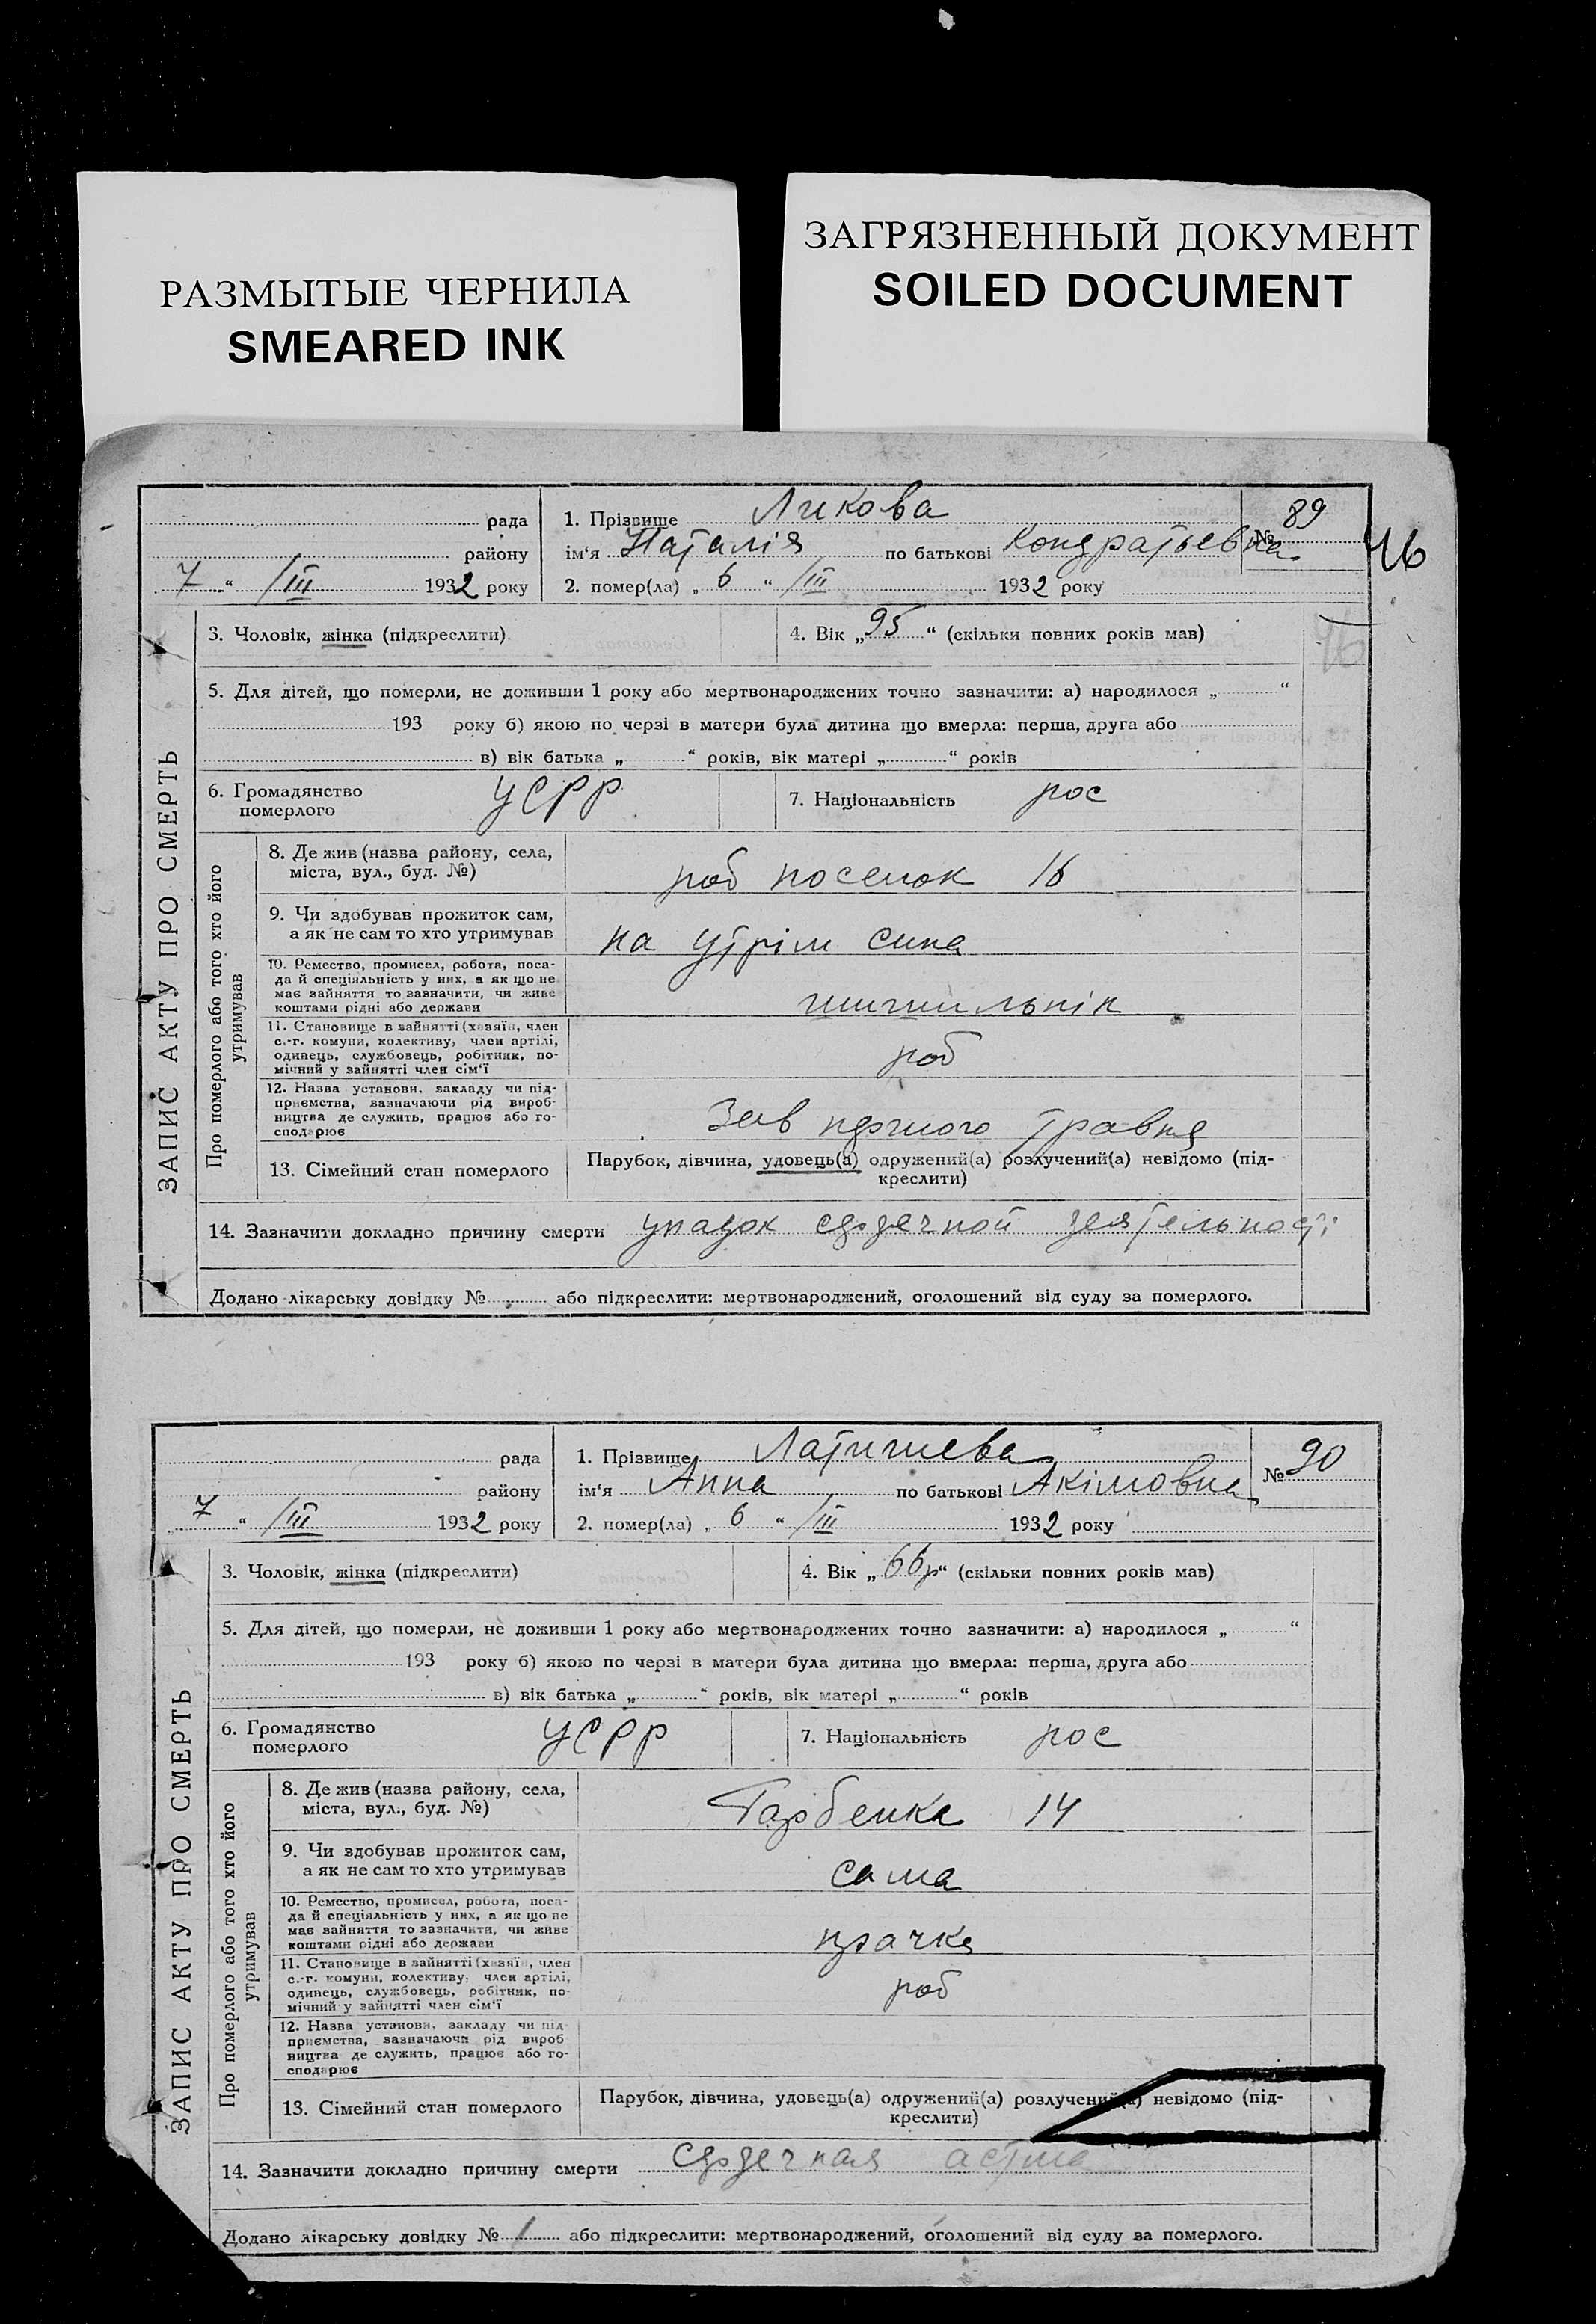 РАЗМЫТЫЕ ЧЕРНИЛА
SMEARED INK
ЗАГРЯЗНЕННЫЙ ДОКУМЕНТ
SOILED DOCUMENT
46
ЗАПИС АКТУ ПРО СМЕРТЬ
рада
району
7 “ /III 1932 року
1. Прізвище Ликова
ім‘я Наталія по батькові Кондратьевна
№ 89
2. помер(ла) „ 6 “ /III 1932 року
3. Чоловік, жінка (підкреслити)
4. Вік „ 95 “ (скільки повних років мав)
46
5. Для дітей, що померли, не доживши 1 року або мертвонароджених точно зазначити: а) народилося „ “
193 року б) якою по черзі в матери була дитина що вмерла: перша, друга або
в) вік батька „ “ років, вік матері „ “ років
6. Громадянство
померлого
УСРР
7. Національність рос
Про померлого або того хто його
утримував
8. Де жив (назва району, села,
міста, вул., буд. №)
роб поселок 16
9. Чи здобував прожиток сам,
а як не сам то хто утримував
на утрім сина
10. Ремество, промисел, робота, поса-
да й спеціяльність у них, а як що не
має зайняття то зазначити, чи живе
коштами рідні або держави
11. Становище в зайнятті (хазяїн, член
с.-г. комуни, колективу, член артілі,
одинець, службовець, робітник, по-
мічний у зайнятті член сім‘ї
роб
12. Назва установи, закладу чи під-
приємства, зазначаючи рід вироб-
ництва де служить, працює або го-
сподарює
Зав першого травня
13. Сімейний стан померлого
Парубок, дівчина, удовець(а) одружений(а) розлучений(а) невідомо (під-
креслити)
14. Зазначити докладно причину смерти упадок сердечной деятельності
Додано лікарську довідку № або підкреслити: мертвонароджений, оголошений від суду за померлого.
ЗАПИС АКТУ ПРО СМЕРТЬ
рада
району
7 “ /III 1932 року
1. Прізвище Латишева
ім‘я Анна по батькові Акімовна
№ 90
2. помер(ла) „ 6 “ /III 1932 року
3. Чоловік, жінка (підкреслити)
4. Вік „ 66р “ (скільки повних років мав)
5. Для дітей, що померли, не доживши 1 року або мертвонароджених точно зазначити: а) народилося „ “
193 року б) якою по черзі в матери була дитина що вмерла: перша, друга або
в) вік батька „ “ років, вік матері „ “ років
6. Громадянство
померлого
УСРР
7. Національність рос
Про померлого або того хто його
утримував
8. Де жив (назва району, села,
міста, вул., буд. №)
14
9. Чи здобував прожиток сам,
а як не сам то хто утримував
сама
10. Ремество, промисел, робота, поса-
да й спеціяльність у них, а як що не
має зайняття то зазначити, чи живе
коштами рідні або держави
прачка
11. Становище в зайнятті (хазяїн, член
с.-г. комуни, колективу, член артілі,
одинець, службовець, робітник, по-
мічний у зайнятті член сім‘ї
роб
12. Назва установи, закладу чи під-
приємства, зазначаючи рід вироб
ництва де служить, працює або го-
сподарює
13. Сімейний стан померлого
Парубок, дівчина, удовець(а) одружений(а) розлучений(а) невідомо (під-
креслити)
14. Зазначити докладно причину смерти сердечная астма
Додано лікарську довідку № 1 або підкреслити: мертвонароджений, оголошений від суду за померлого.